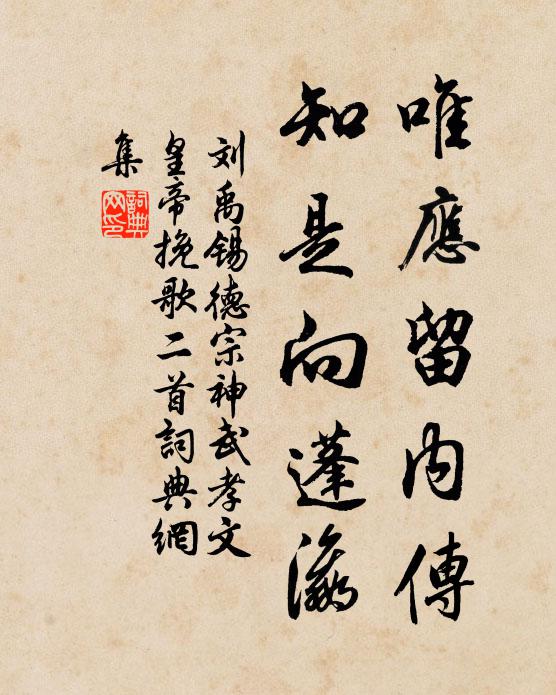 唯應留内傳
知是向蓬瀛
刘禹錫德宗神武孝文
皇帝挽歌二首詞典網
集
詞典
网印